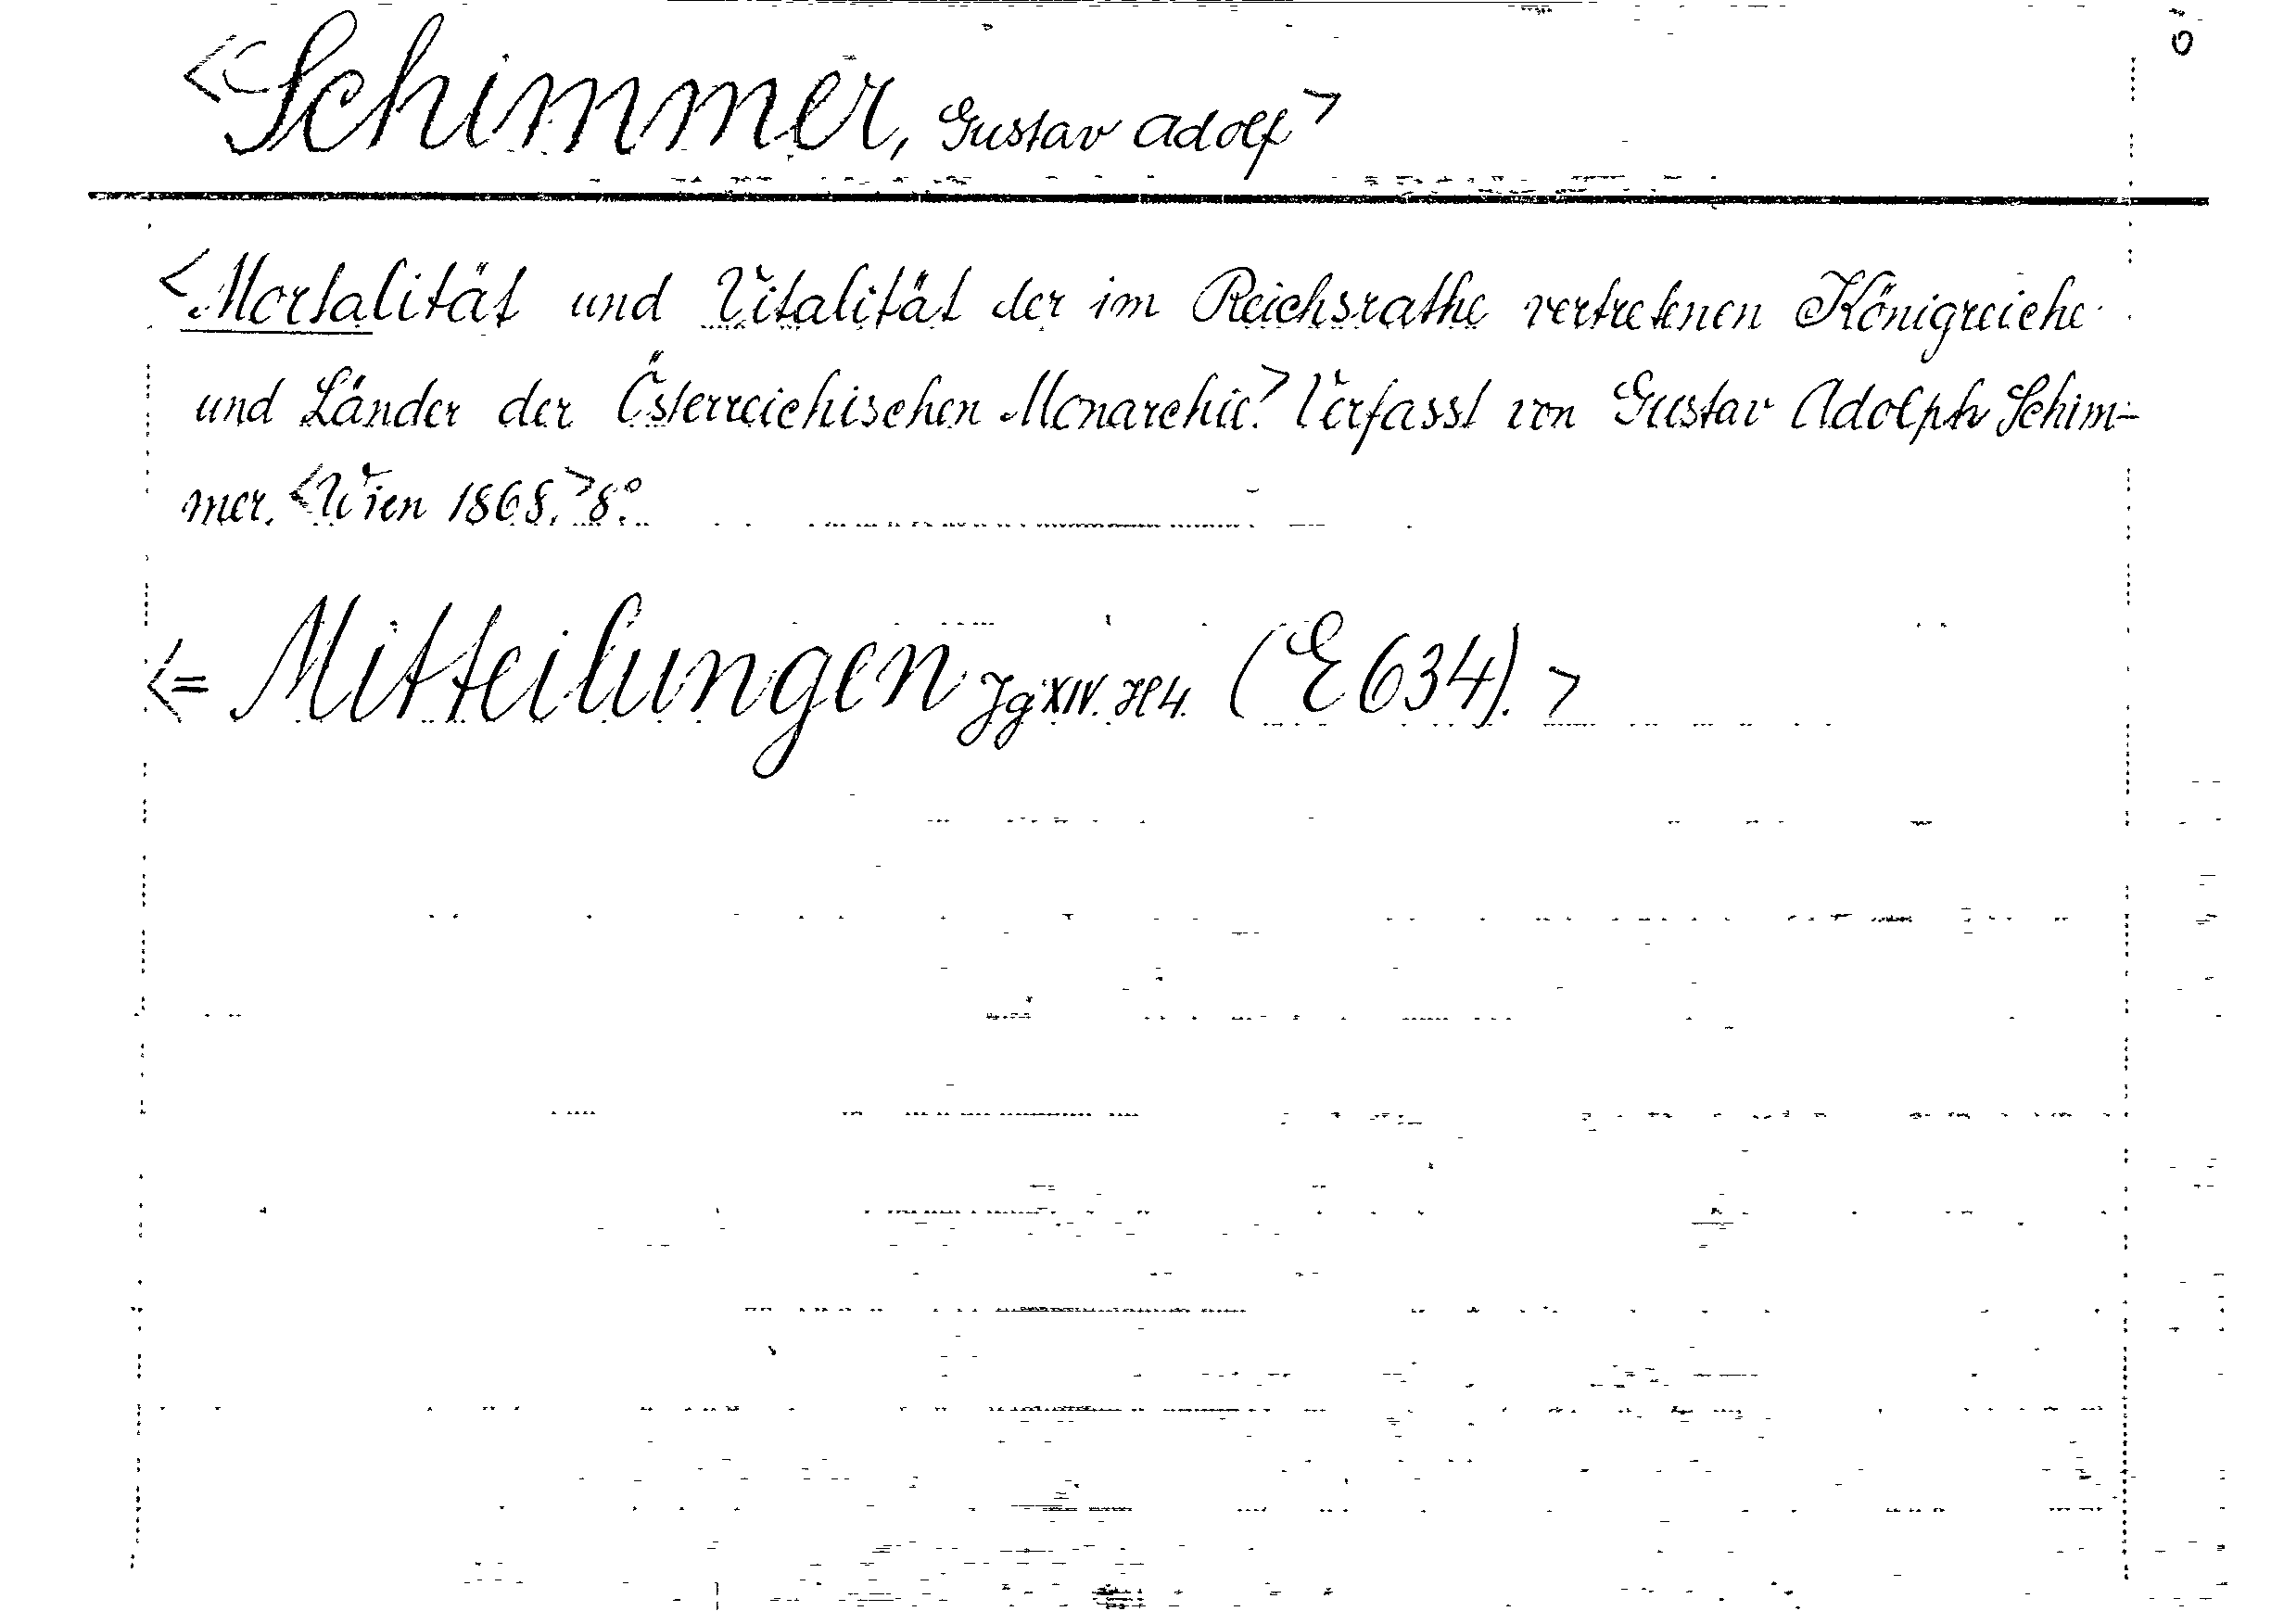 <Schimmer, Gustav Adolf>
<Mortalität und Vitalität der im Reichsrathe vertretenen Königreiche
und Länder der Österreichischen Monarchie.> Verfasst von Gustav Adolph Schim-
mer. <Wien 1868.> 8.°
<= Mitteilungen Jg XIV. H 4. (E 634). >